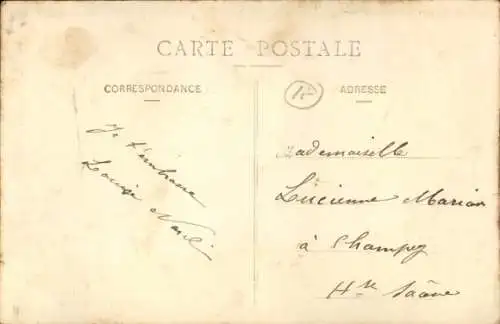 CARTE POSTALE
CORRESPONDANCE
ADRESSE
Je t'embrasse
Louise
Mademoiselle
Lucienne Marion
à Champey
Hte Saône